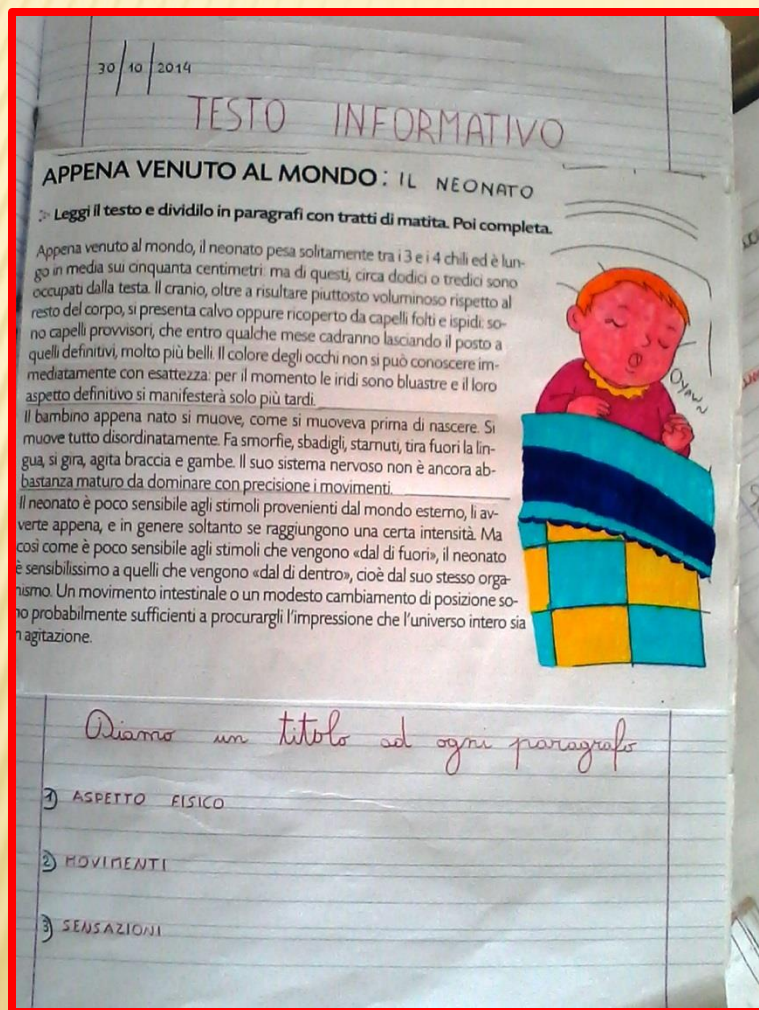 30/10/2014
TESTO INFORMATIVO
APPENA VENUTO AL MONDO: IL NEONATO
Leggi il testo e dividilo in paragrafi con tratti di matita. Poi completa.
Appena venuto al mondo, il neonato pesa solitamente tra i 3 e i 4 chili ed è lun-
go in media sui cinquanta centimetri: ma di questi, circa dodici o tredici sono
occupati dalla testa. Il cranio, oltre a risultare piuttosto voluminoso rispetto al
resto del corpo, si presenta calvo oppure ricoperto da capelli folti e ispidi: so-
no capelli provvisori, che entro qualche mese cadranno lasciando il posto a
quelli definitivi, molto più belli. Il colore degli occhi non si può conoscere im-
mediatamente con esattezza: per il momento le iridi sono bluastre e il loro
aspetto definitivo si manifesterà solo più tardi.
Il bambino appena nato si muove, come si muoveva prima di nascere. Si
muove tutto disordinatamente. Fa smorfie, sbadigli, starnuti, tira fuori la lin-
gua, si gira, agita braccia e gambe. Il suo sistema nervoso non è ancora ab-
bastanza maturo da dominare con precisione i movimenti.
Il neonato è poco sensibile agli stimoli provenienti dal mondo esterno, li av-
verte appena, e in genere soltanto se raggiungono una certa intensità. Ma
così come è poco sensibile agli stimoli che vengono «dal di fuori», il neonato
è sensibilissimo a quelli che vengono «dal di dentro», cioè dal suo stesso orga-
nismo. Un movimento intestinale o un modesto cambiamento di posizione so-
no probabilmente sufficienti a procurargli l'impressione che l'universo intero sia
n agitazione.
OYAWN
Diamo un titolo ad ogni paragrafo
1) ASPETTO FISICO
2) MOVIMENTI
3) SENSAZIONI